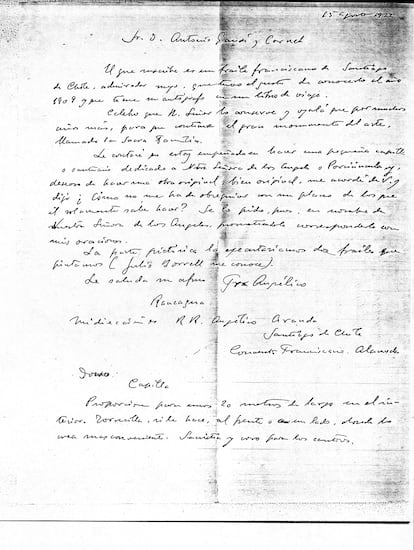 15 Agosto 1922
Sr. D. Antonio Gaudí y Cornet
El que suscribe es un fraile franciscano de Santiago
de Chile, admirador suyo, que tuvo el gusto de conocerlo el año
1909 y que tiene un autógrafo en un libro de viaje.
Celebro que N. Señor lo conserve y ojalá que por muchos
años más, para que continúe el gran monumento del arte,
llamado la Sagra Familia.
Le contaré que estoy empeñado en hacer una pequeña capilla
o santuario dedicado a Ntra Señora de los Angeles o Porciúncula y,
deseoso de hacer una obra original, bien original, me acordé de V. y
dije ¿Cómo no me ha de obsequiar con un plano de los que
él solamente sabe hacer? Se lo pido, pues, en nombre de
Nuestra Señora de los Angeles, prometiéndole corresponderle con
mis oraciones.
La parte pictórica la ejecutaríamos dos frailes que
pintamos (Julio Borrell me conoce).
Le saluda su afmo Fra Angélico
Rancagua
mi dirección es R. R. Angélico Aranda
Santiago de Chile
Convento Franciscano. Alameda
Capilla
Proporción para unos 20 metros de largo en el in-
terior. Torrecilla, si la hace, al frente o en un lado, donde lo
crea mas conveniente. Sacristía y coro para los cantores.